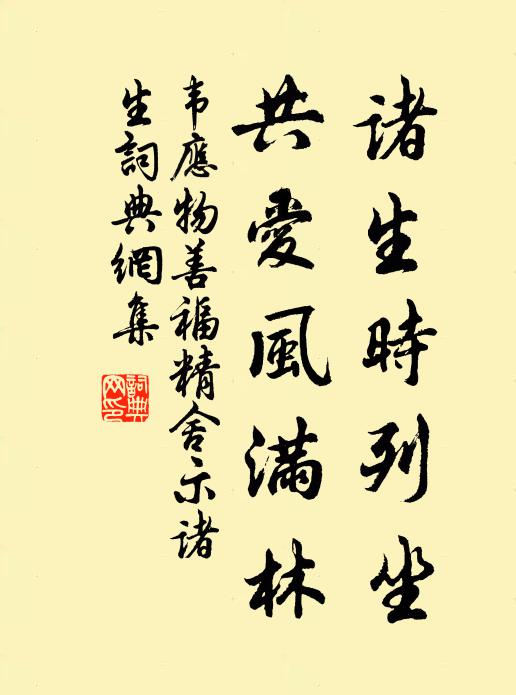 诸生时列坐
共爱風满林
韦應物善福精舍示诸
生詞典網集
詞典
网印